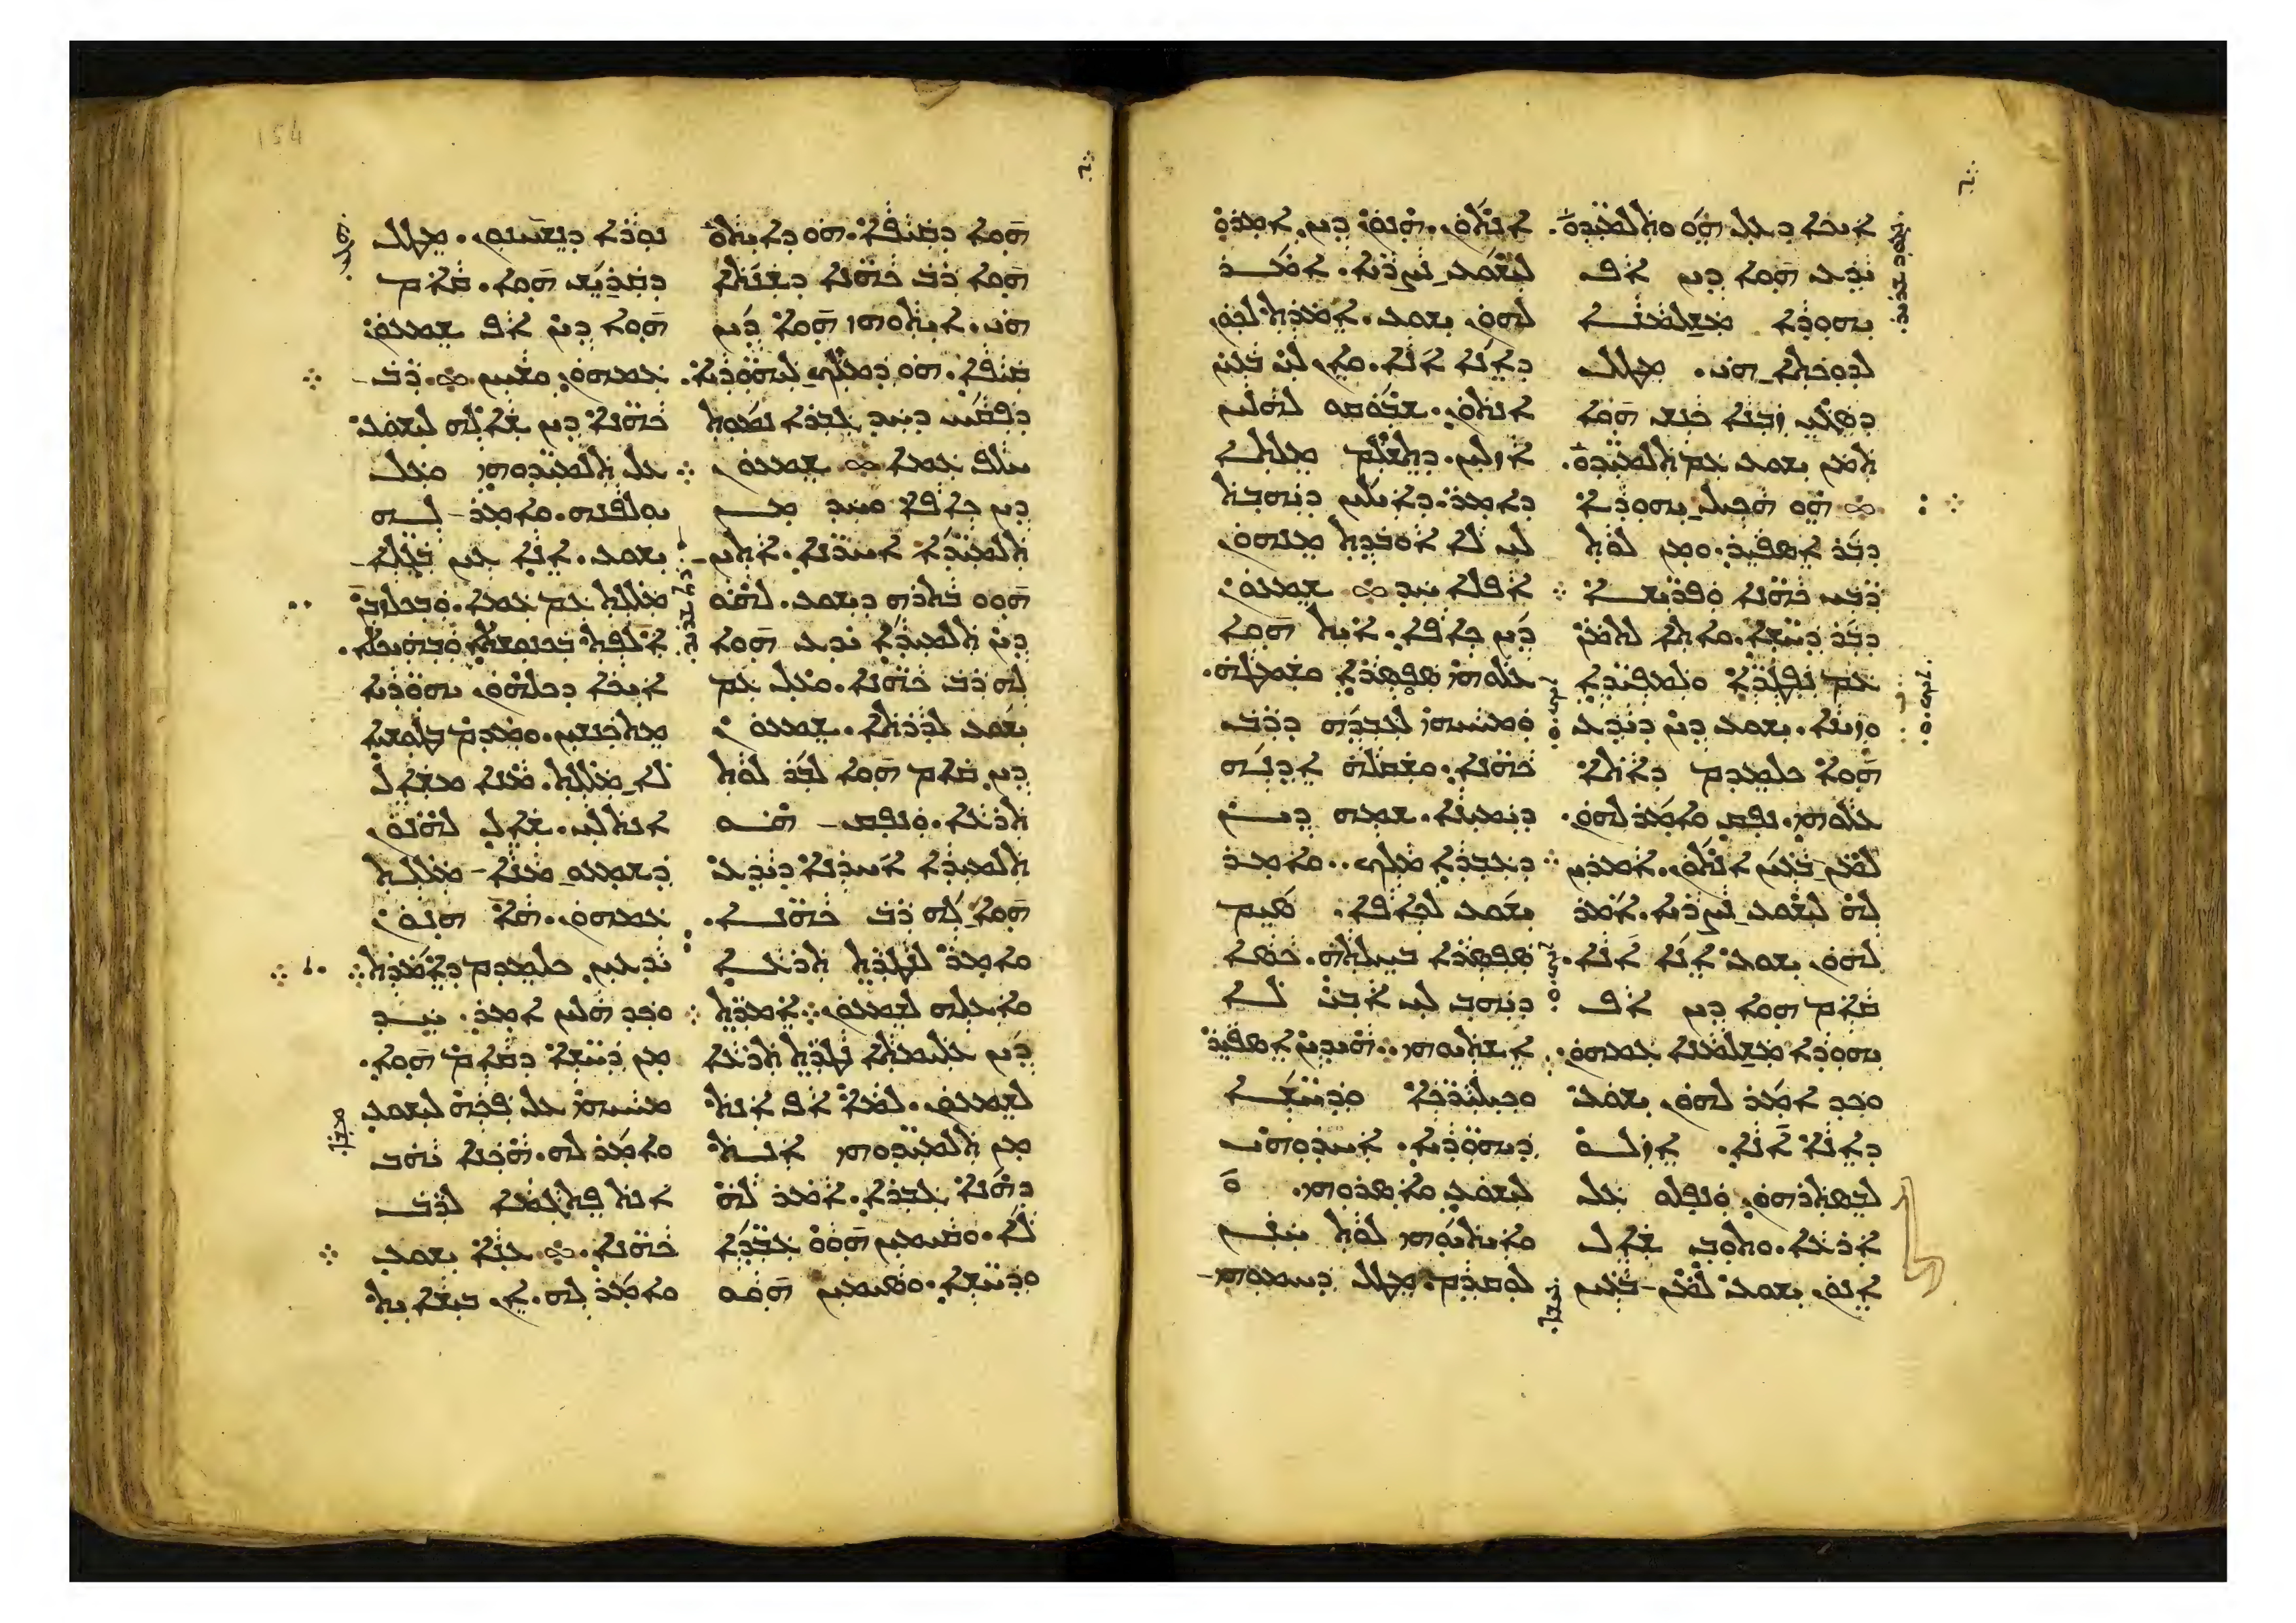 ܐܝܟܐ ܕܥܠ ܗܘ ܘܬܠܡܝܕܘ̈.
ܝܕܥ ܗܘܐ ܕܝܢ ܐܦ
ܝܗܘܕܐ ܡܫܠܡܢܐ
ܠܕܘܟܬܐ ܗܝ. ܡܛܠ
ܕܣܓܝ ܙܒܢܐ ܟܢܫ ܗܘܐ
ܬܡܢ ܝܫܘܥ ܥܡ ܬܠܡܝܕܘ̈.
ܗܘ ܗܟܝܠ ܝܗܘܕܐ
ܕܒܪ ܐܣܦܝܪ. ܘܡܢ ܠܘܬ
ܪ̈ܒܝ ܟܗ̈ܢܐ ܘܦܪ̈ܝܫܐ
ܕܒܪ ܕܚ̈ܫܐ. ܘܐܬܐ ܠܬܡܢ
ܥܡ ܢܦܛܪ̈ܐ ܘܠܡܦܝܕ̈ܐ
ܘܙܝܢܐ. ܝܫܘܥ ܕܝܢ ܕܝܕܥ
ܗܘܐ ܟܠܡܕܡ ܕܐܬܐ
ܥܠܘܗܝ. ܢܦܩ ܘܐܡܪ ܠܗܘܢ.
ܠܡܢ ܒܥܝܢ ܐܢܬܘܢ. ܐܡܪܝܢ
ܠܗ ܠܝܫܘܥ ܢܨܪܝܐ. ܐܡܪ
ܠܗܘܢ ܝܫܘܥ ܐܢܐ ܐܢܐ.
ܩܐܡ ܗܘܐ ܕܝܢ ܐܦ
ܝܗܘܕܐ ܡܫܠܡܢܐ ܥܡܗܘܢ.
ܘܟܕ ܐܡܪ ܠܗܘܢ ܝܫܘܥ
ܕܐܢܐ ܐܢܐ. ܐܙܠܘ
ܠܒܣܬܪܗܘܢ. ܘܢܦܠܘ ܥܠ
ܐܪܥܐ. ܘܬܘܒ ܫܐܠ
ܐܢܘܢ ܝܫܘܥ ܠܡܢ ܒܥܝܢ
ܐܢܬܘܢ. ܗܢܘܢ ܕܝܢ ܐܡܪܘ
ܠܝܫܘܥ ܢܨܪܝܐ. ܐܡܪ
ܠܗܘܢ ܝܫܘܥ. ܐܡܪܬ ܠܟܘܢ
ܕܐܢܐ ܐܢܐ. ܘܐܢ ܠܝ ܒܥܝܢ
ܐܢܬܘܢ. ܫܒܘܩܘ ܠܗܠܝܢ
ܐܙܠܝܢ. ܕܬܫܠܡ ܡܠܬܐ
ܕܐܡܪ. ܕܐܝܠܝܢ ܕܝܗܒܬ
ܠܝ ܠܐ ܐܘܒܕܬ ܡܢܗܘܢ
ܐܦܠܐ ܚܕ ܫܡܥܘܢ
ܕܝܢ ܟܐܦܐ. ܐܝܬ ܗܘܐ
ܥܠܘܗܝ ܣܦܣܪܐ ܘܫܡܛܗ.
ܘܡܚܝܗܝ ܠܥܒܕܗ ܕܪܒ
ܟܗ̈ܢܐ. ܘܫܩܠܗ ܐܕܢܗ
ܕܝܡܝܢܐ. ܫܡܗ ܕܝܢ
ܕܥܒܕܐ ܡܠܟ. ܘܐܡܪ
ܝܫܘܥ ܠܟܐܦܐ. ܣܝܡ
ܣܦܣܪܐ ܒܚܠܬܗ. ܟܣܐ
ܕܝܗܒ ܠܝ ܐܒܝ ܠܐ
ܐܫܬܝܘܗܝ. ܗܝܕܝܢ ܐܣܦܝܪ
ܘܟܝܠܝܪ̈ܟܐ ܘܕܚ̈ܫܐ
ܕܝܗܘ̈ܕܝܐ. ܐܚܕܘܗܝ
ܠܝܫܘܥ ܘܐܣܪܘܗܝ.
ܘܐܝܬܝܘܗܝ ܠܘܬ ܚܢܢ
ܠܘܩܕܡ. ܡܛܠ ܕܚܡܘܗܝ
ܗܘܐ ܕܩܝܦܐ. ܗܘ ܕܐܝܬܘ
ܗܘܐ ܪܒ ܟܗ̈ܢܐ ܕܫܢܬܐ
ܗܝ. ܐܝܬܘܗܝ ܗܘܐ ܕܝܢ
ܩܝܦܐ. ܗܘ ܕܡܠܟ ܠܝܗܘ̈ܕܝܐ.
ܕܦܩܚ ܕܚܕ ܓܒܪܐ ܢܡܘܬ
ܚܠܦ ܥܡܐ ܫܡܥܘܢ
ܕܝܢ ܟܐܦܐ ܘܚܕ ܡܢ
ܬܠܡܝܕ̈ܐ ܐܚܪ̈ܢܐ. ܐܬܝܢ
ܗܘܘ ܒܬܪܗ ܕܝܫܘܥ. ܠܗܘ
ܕܝܢ ܬܠܡܝܕܐ ܝܕܥ ܗܘܐ
ܠܗ ܪܒ ܟܗ̈ܢܐ. ܘܥܠ ܥܡ
ܝܫܘܥ ܠܕܪܬܐ. ܫܡܥܘܢ
ܕܝܢ ܩܐܡ ܗܘܐ ܠܒܪ ܠܘܬ
ܬܪܥܐ. ܘܢܦܩ ܗܘ
ܬܠܡܝܕܐ ܐܚܪܢܐ ܕܝܕܥ
ܗܘܐ ܠܗ ܪܒ ܟܗ̈ܢܐ.
ܘܐܡܪ ܠܢܛܪܬ ܬܪܥܐ
ܘܐܥܠܗ ܠܫܡܥܘܢ ܐܡܪܬ
ܕܝܢ ܥܠܝܡܬܐ ܢܛܪܬ ܬܪܥܐ
ܠܫܡܥܘܢ. ܠܡܐ ܐܦ ܐܢܬ
ܡܢ ܬܠܡܝܕ̈ܘܗܝ ܐܢܬ
ܕܗܢܐ ܓܒܪܐ. ܐܡܪ ܠܗ
ܠܐ. ܘܩܝܡܝܢ ܗܘܘ ܥܒ̈ܕܐ
ܘܕܚ̈ܫܐ. ܘܣܝܡܝܢ ܗܘܘ
ܢܘܪܐ ܕܢܫܚܢܘܢ. ܡܛܠ
ܕܩܪܝܫ ܗܘܐ. ܩܐܡ
ܗܘܐ ܕܝܢ ܐܦ ܫܡܥܘܢ
ܥܡܗܘܢ ܘܫܚܢ. ܪܒ
ܟܗ̈ܢܐ ܕܝܢ ܫܐܠܗ ܠܝܫܘܥ
ܥܠ ܬܠܡܝܕ̈ܘܗܝ ܘܥܠ
ܝܘܠܦܢܗ. ܘܐܡܪ ܠܗ
ܝܫܘܥ. ܐܢܐ ܥܝܢ ܒܓܠܐ
ܡܠܠܬ ܥܡ ܥܡܐ. ܘܒܟܠܙܒܢ
ܐܠܦܬ ܒܟܢܘܫܬܐ ܘܒܗܝܟܠܐ.
ܐܝܟܐ ܕܟܠܗܘܢ ܝܗܘ̈ܕܝܐ
ܡܬܟܢܫܝܢ. ܘܡܕܡ ܒܛܘܫܝܐ
ܠܐ ܡܠܠܬ. ܡܢܐ ܡܫܐܠ
ܐܢܬ ܠܝ. ܫܐܠ ܠܗܢܘܢ
ܕܫܡܥܘ ܡܢܐ ܡܠܠܬ
ܥܡܗܘܢ. ܗܐ ܗܢܘܢ
ܝܕܥܝܢ ܟܠܡܕܡ ܕܐܡܪܬ
ܘܟܕ ܗܠܝܢ ܐܡܪ. ܚܕ
ܡܢ ܕܚ̈ܫܐ ܕܩܐܡ ܗܘܐ.
ܡܚܝܗܝ ܥܠ ܦܟܗ ܠܝܫܘܥ
ܘܐܡܪ ܠܗ. ܗܟܢܐ ܝܗܒ
ܐܢܬ ܦܬܓܡܐ ܠܪܒ
ܟܗ̈ܢܐ. ܥܢܐ ܝܫܘܥ
ܘܐܡܪ ܠܗ. ܐܢ ܒܝܫܐܝܬ
154